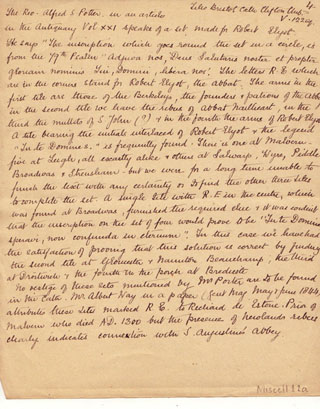 4
Tiles Bristol Cath. Clifton Antiq.
V - 1902
The Rev. Alfred S. Porter. in an article
in the Antiquary Vol XXI speaks of a set made for Robert Elyot.
He says "The inscription which goes round the set in a circle, is
from the 79th Psalm "Adjuva nos, Deus Salutaris noster et propter
gloriam nominis Tui, Domini, libera nos". The letters R.E which
are in the corners stand for Elyot, the abbot. The arms in the
first tile are those of the Berkeleys, the founders & patrons of the Abbey
in the second tile we have the rebus of abbot Nailheart, in the third
the mullets of S. John (?) & in the fourth the arms of Robert Elyot
A tile bearing the initials interlaced of Robert Elyot & the legend
"In te Domine s." is frequently found. There is one at Malvern.
five at Leigh, all exactly alike & others at Salwarp, Wyre, Piddle,
Broadwas & Strensham - but we were for a long time unable to
finish the text with any certainty or to find the other three tiles
to complete the set. A single tile with R.E in the centre, which
was found at Broadwas, furnished the required clue & it was contended
that the inscription on the set of four would prove to be "In te Domine
speravi, non confundar in eternum". In this case we have had
the satisfaction of proving that this solution is correct by finding
the second tile at Gloucester & Naunton Beauchamp, the third
at Droitwich & the fourth in the porch at Bredicot.
No vestige of these sets mentioned by Mr Porter are to be found
in the Cath. Mr Albert Way in a paper (Gent Mag May & June 1844,
attributes these tiles marked R.E. to Richard de Estone. Prior of
Malvern who died A.D. 1300 but the presence of Newlands rebus
clearly indicates connexion with S. Augustines Abbey